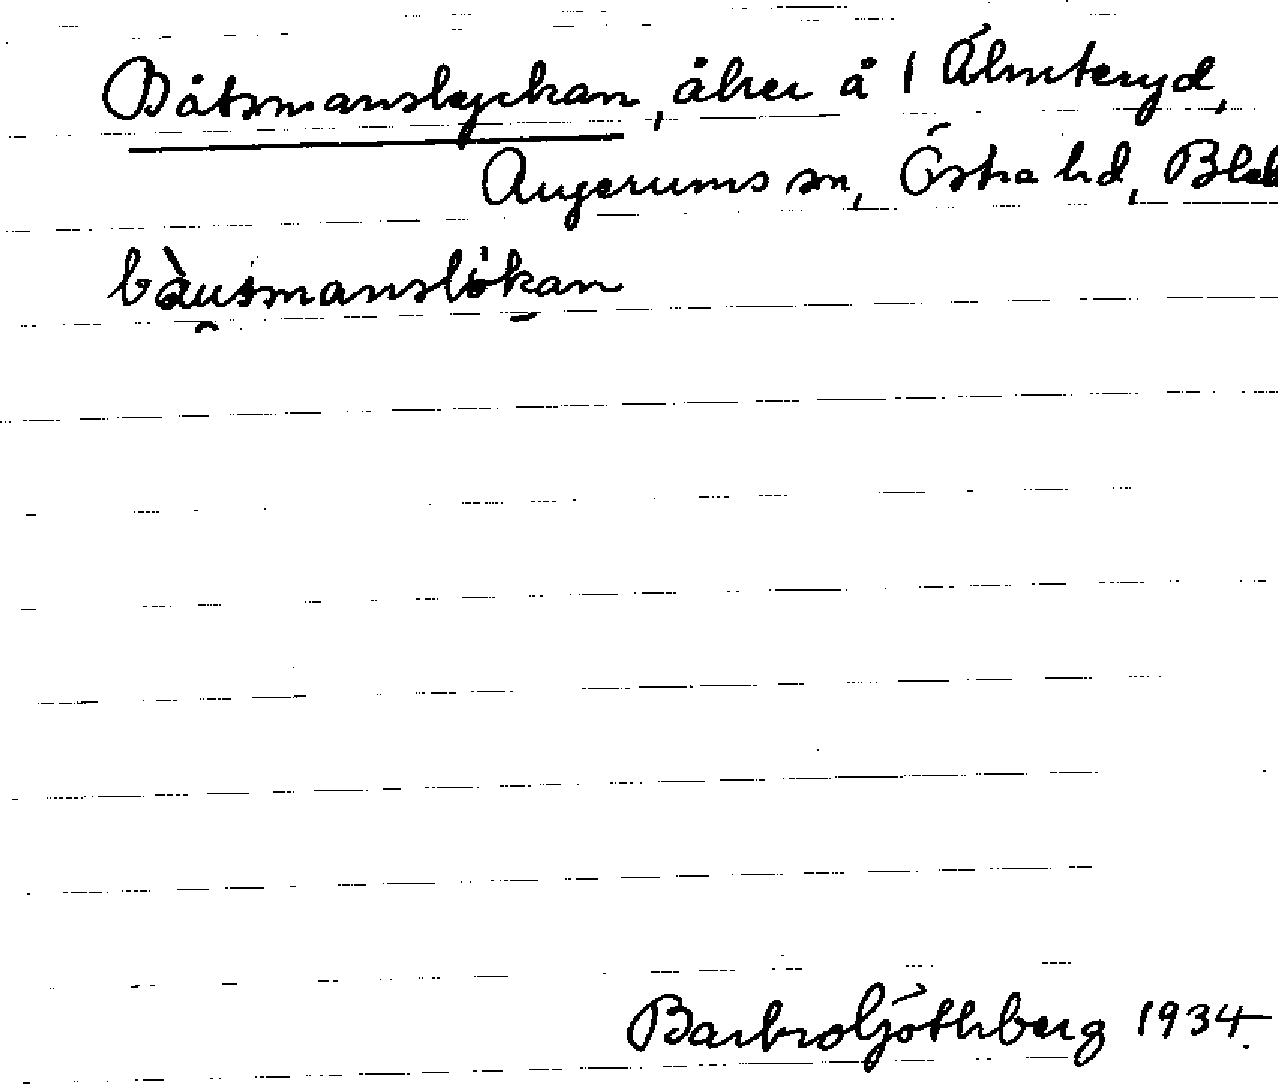 Båtsmanslyckan, åker å 1 Älmteryd,
Augerums sn, Östra hd, Blek
bàusmanslökan
Barbro Göthberg 1934.